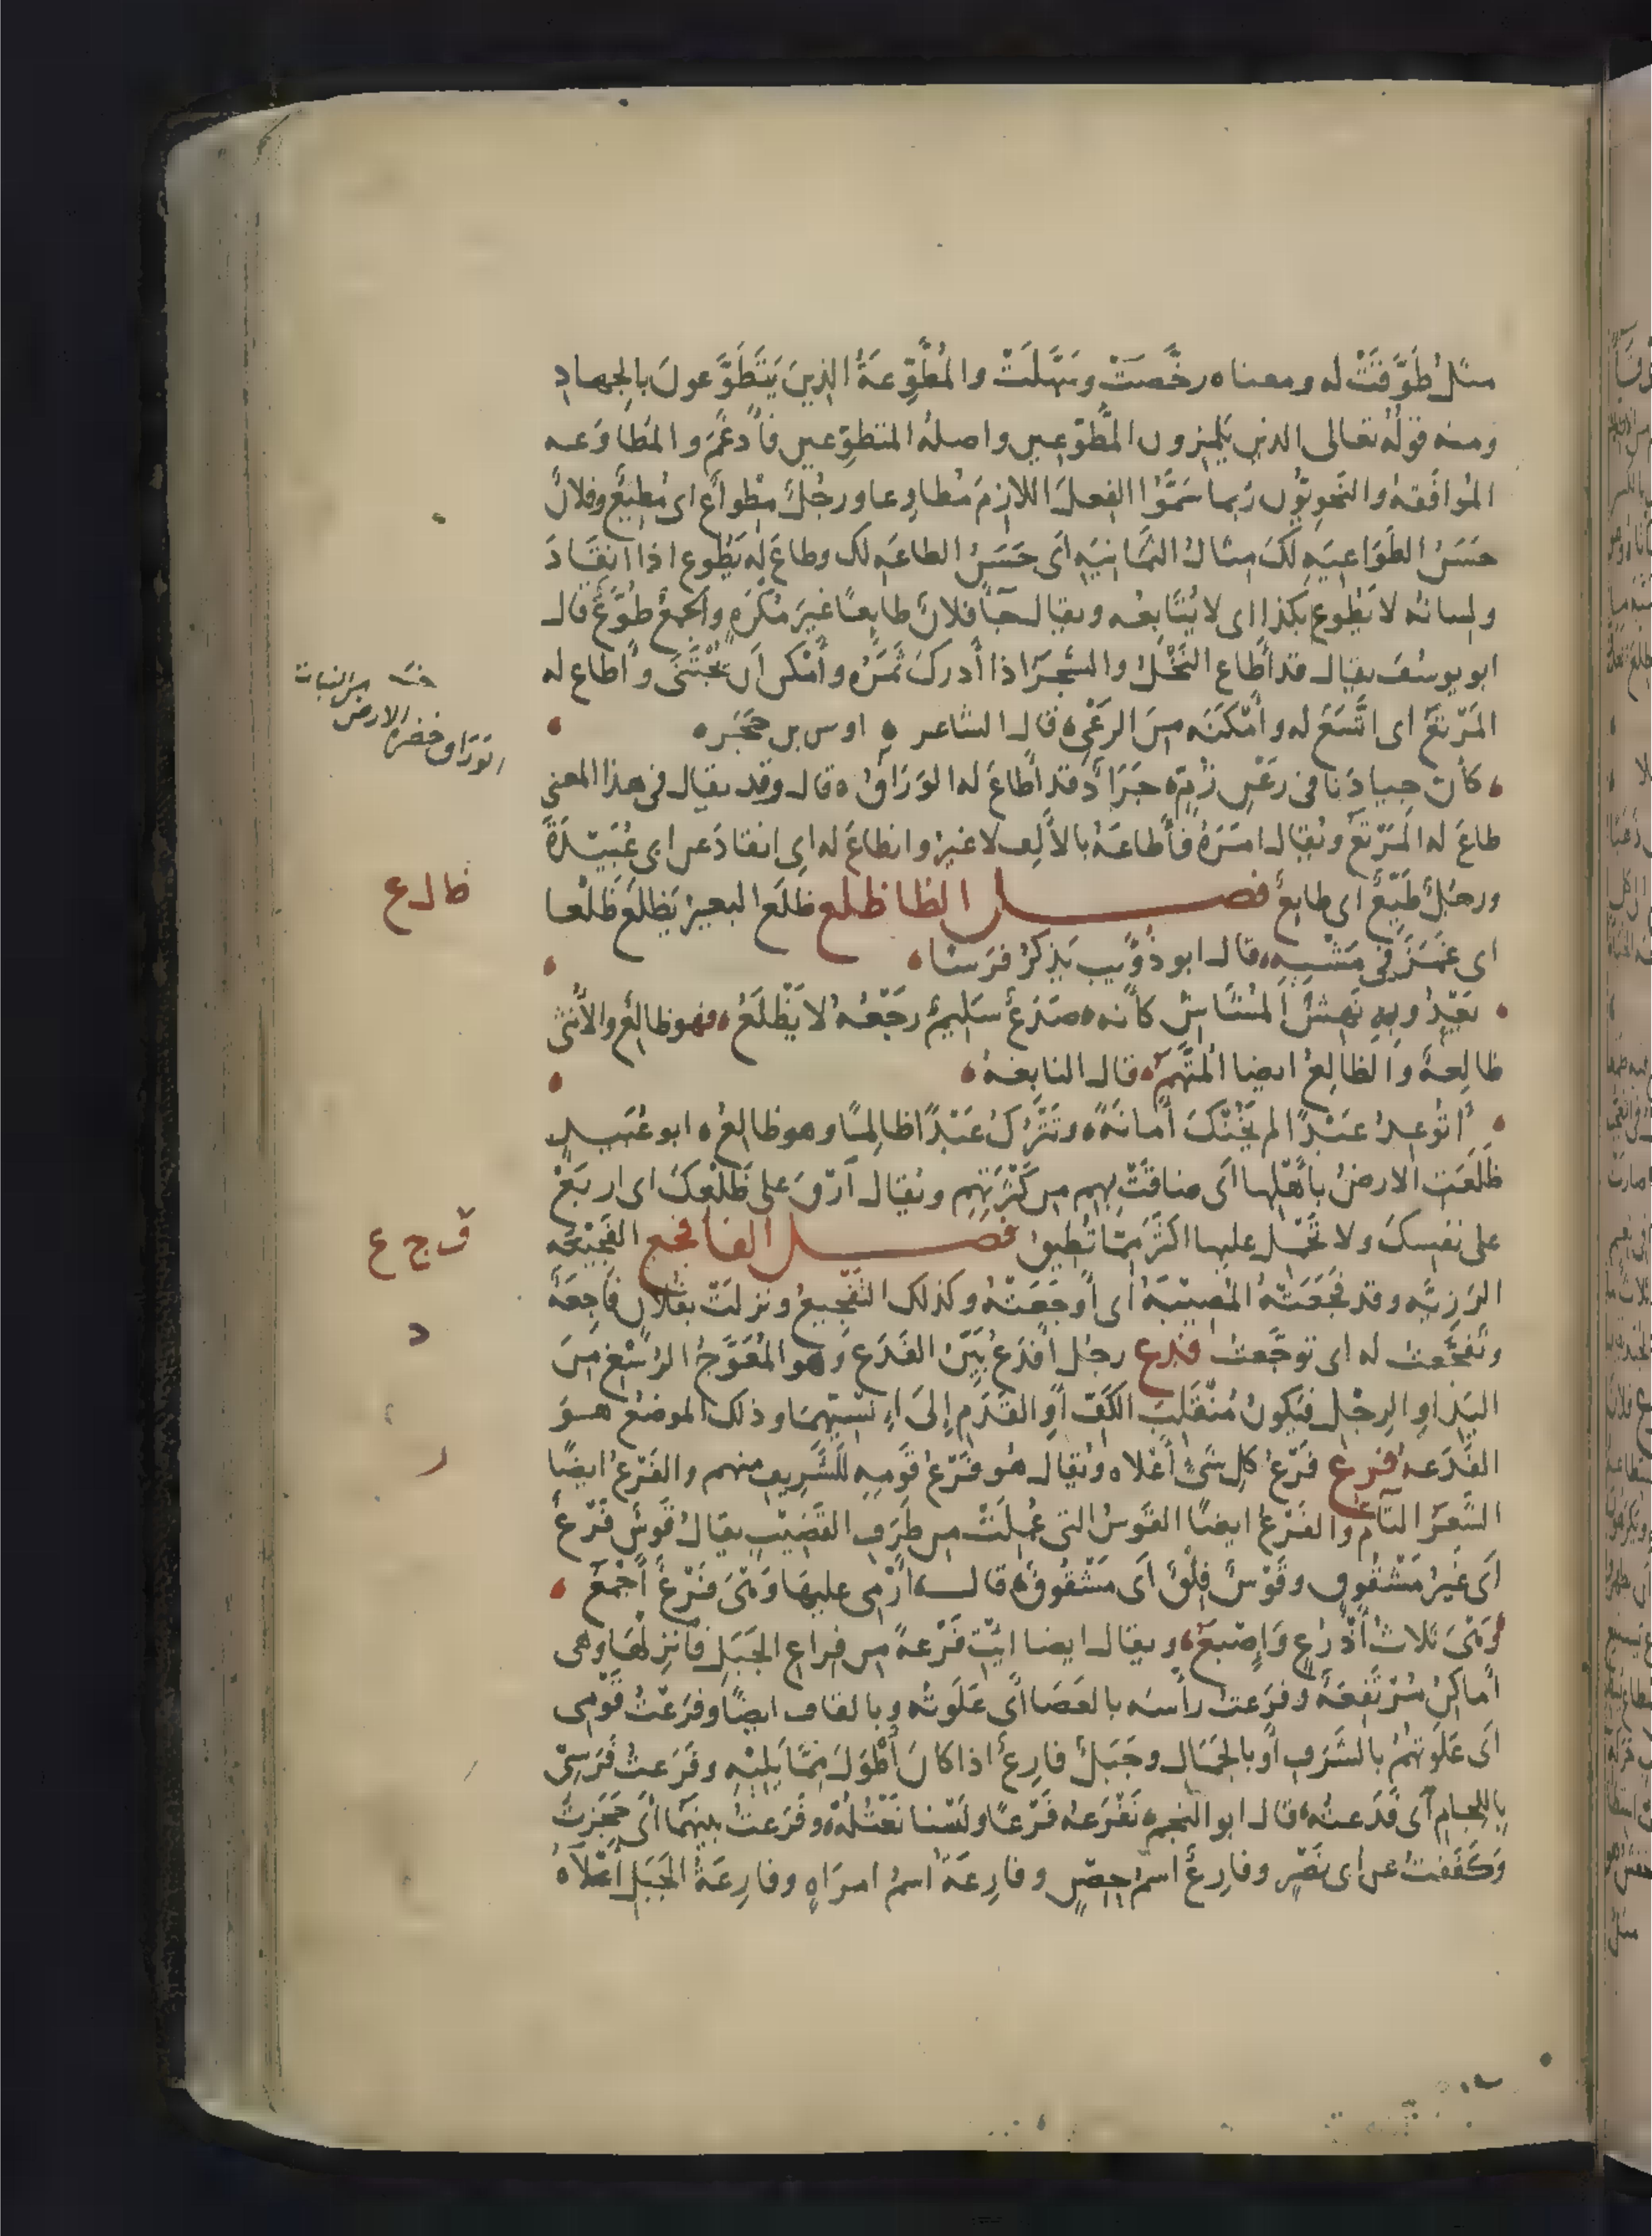 مثلُ طَوَّقَتْ له ومعناه رخَّصَتْ وسَهَّلَتْ والمُطَّوِّعَةُ الذينَ يَتَطَوَّعونَ بالجهادِ
ومنه قولُه تعالى الذين يَلمِزون المُطَّوّعين واصلهُ المتطوِّعين فأُدغمَ والمُطاوَعه
المُوافَقهُ والنَّحويُّون ربّما سَمَّوُا الفِعلَ اللازمَ مُطاوِعا ورجُلٌ مِطْواعٌ اى مُطيعٌ وفلانٌ
حَسَنُ الطَوَاعِيَهِ لكَ مثال الثمانِيَهِ اى حَسَنُ الطاعَهِ لك وطاعَ له يَطُوع اذا انقَادَ
ولسانه لا يَطُوع بكذا اى لا يُتَابِعُه ويقال جآ فلانٌ طايِعًا غيرَ مُكْرَهٍ والجمعُ طُوَّعٌ قال
ابو يوسُفَ يقال قد أطاع النَخْلُ والشجَرُ اذا أدركَ ثَمَرُه وأَمْكن أن يُجْتَنَى وأطاع له
المَرْتعُ اى اتَّسَعَ له وأمْكَنَه مِنَ الرَعْي قال الشاعر اوس بن حَجَر
كأن جيادَنا فى رَعْنِ زُمٍّ جَرَادٌ قد أطاعَ له الوَرَاقُ قال وقد يقال فى هذا المعنى
طاعَ له المَرْتَعُ ويُقال امَرَهُ فأطاعَهُ بالألِف لا غيرُ وانطاعَ له اى انقادَ عن ابى عُبَيْدَةَ
ورجُلٌ طَيّعٌ اى طايعٌ فصل الظا ظلع ظَلَعَ البعيرُ يَظلَعُ ظَلْعا
اى غَمَزَ فى مَشْيِهِ قال ابو ذُؤَيبٍ يَذكُرُ فرَسًا
يَعْدُو بِهِ نَهِشُ المُشَاشِ كأنه صَدَعٌ سَليمٌ رجْعُهُ لا يَظْلَعُ فهو ظالعٌ والأنثى
ظالِعةٌ والظالِعُ ايضا المُتَّهَمُ قال النابِغةُ
أتُوعِدُ عَبْدًا لم يَخُنْكَ أمانَةً وتَتْرُكُ عَبْدًا ظالِمًا وهو ظالِعُ ابو عُبَيدٍ
ظَلَعَت الارضُ بأهْلِها اى ضاقَتْ بهِم من كَثْرَتِهِم ويُقال آرْقَ على ظَلْعِكَ اى اربَعْ
على نفسِكَ ولا تَحْمِل عليها اكثرَ مِمّا تُطيقُ فصل الفا فجع الفَجِيْعه
الرَزِيَّه وقد فَجَعَتْهُ المُصيبَةُ اى أوجَعَتْهُ وكذلك التفْجيعُ ونزلَتْ بفُلانٍ فاجِعَةٌ
وتفَجَّعتُ له اى توجَّعتُ فدع رجُل أفدَعُ بَيّنُ الفَدَعِ وَهو المُعْوَجُّ الرُسْغِ مِنَ
اليَدِ او الرِجْلِ فيَكونُ مُنْقَلِبَ الكَفّ أوِ القَدَمِ إلى اِنسِيِّهما وذلك الموضعُ هُوَ
الفَدَعهُ فرع فَرْعُ كلِ شَىْءٍ أَعْلاه ويُقال هُو فَرْعُ قَومِهِ للشَّريفِ منهم والفَرْعُ ايضًا
الشَّعَرُ التآمُّ والفَرْعُ ايضًا القَوسُ التى عُمِلَتْ من طَرَفِ القَضيبِ يقالُ قَوسٌ فَرْعٌ
اى غَيرُ مَشْقُوقٍ وقَوْسٌ فِلْقٌ اى مَشْقُوقٌ قال أَرْمِى عليها وَهْىَ فَرْعٌ أَجْمَعُ
وَهْىَ ثلاثُ أَذْرُعٍ وَإصْبَعُ ويقال ايضا ايتِ فَرْعةً من فِراعِ الجَبَلِ فانزِلْهَا وهى
أماكِنُ مُرْتَفِعَةٌ وفَرَعتُ رأسَه بالعَصَا اى عَلَوتُه وبالقاف ايضًا وفَرَعْتُ قَوْمِى
اى عَلَوتُهُمْ بالشَرَفِ أو بالجَمَالِ وجَبَلٌ فارِعٌ اذا كانَ أَطْوَلَ مِمَّا يَلِيْهِ وفَرَعتُ فَرَسِىْ
بِاللجامِ اى قَدَعتُه قال ابو النجم نَفْرَعه فَرْعًا ولَسْنا نَعْتِلُهْ وفَرَعتُ بينهُمَا اى حَجَزتُ
وَكفَفتُ عن ابى نَصْرٍ وفارعٌ اسمُ حِصْنٍ وفارِعَةُ اسمُ امرَاهٍ وفارِعَةُ الجَبَلِ أَعْلَاهُ
الوَرَاق خضرة الارض من النبات
ظ ل ع
ف ج ع
د
ر